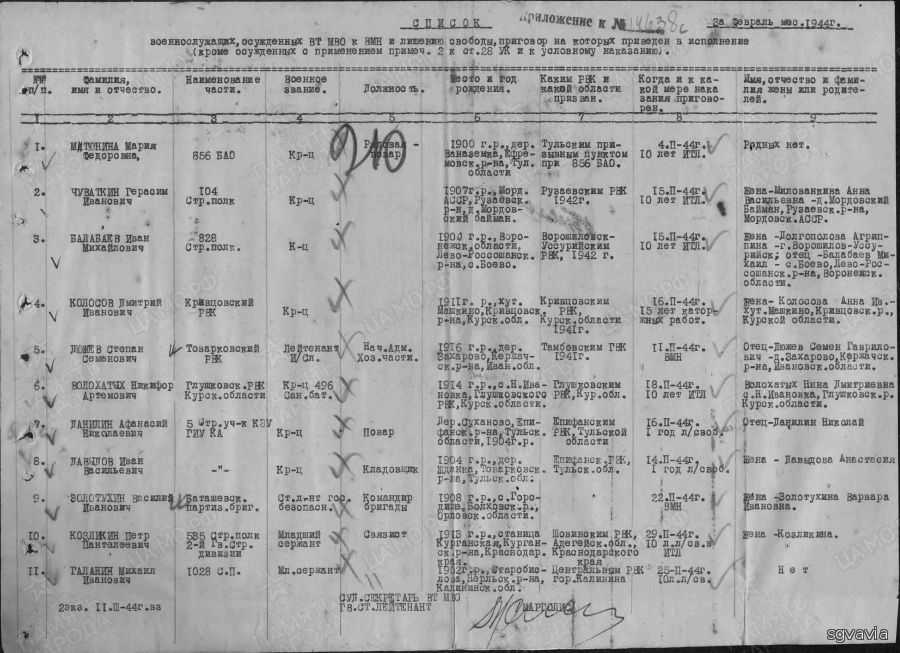 Приложение к № 14638с
СПИСОК
за февраль мес.1944г.
военнослужащих, осужденных ВТ МВО к ВМН и лишению свободы, приговор на которых приведен в исполнение
(кроме осужденных с применением примеч. 2 к ст.28 УК и к условному наказанию).
№№ п/п. Фамилия, имя и отчество. Наименование части. Военное звание. Должность. Место и год рождения. Каким РВК и какой области призван. Когда и к какой мере наказания приговорен. Имя, отчество и фамилия жены или родителей.
1 2 3 4 5 6 7 8 9
210
1. МАТЮНИНА Мария 1900 г.р., дер. Тульским при- 4.II-44г. Родных нет.
Федоровна, 856 БАО Кр-ц Ваназемка, Ефре- зывным пунктом 10 лет ИТЛ.
мовск.р-на, Тул. при 856 БАО.
области
2. ЧУВАТКИН Герасим 104 1907г.р., Морд. Рузаевским РВК 15.II-44г. Жена-Милованкина Анна
Иванович Стр.полк Кр-ц АССР, Рузаевск. 1942г. 10 лет ИТЛ. Васильевна -д.Мордовский
р-н, д.Мордов- Байман, Рузаевск.р-на,
ский байман. Мордовск.АССР.
3. БАЛАБАЕВ Иван 828 1900 г.р., Воро- Ворошиловск- 15.II-44г. Жена -Долгополова Агрип-
Михайлович Стр.полк. К-ц нежск.области, Уссурийским 10 лет ИТЛ. пина -г.Ворошилов-Уссу-
Лево-Россошанск. РВК, 1942 г. рийск; отец -Балабаев Ми-
р-на, с.Боево. хаил - с.Боево, Лево-Рос-
сошанск.р-на, Воронежск.
области.
4. КОЛОСОВ Дмитрий Кривцовский 1911г.р., хут. Кривцовским 16.II-44г. Жена- Колосова Анна Ив.-
Иванович РВК Кр-ц Машкино, Кривцовск. РВК, 15 лет катор- хут.Машкино, Кривцовск.р.,
р-на, Курск.обл. Курск.области жных работ. Курской области.
1941г.
5. ДЮЖЕВ Степан Товарковский Лейтенант Нач.Адм. 1916 г.р., дер. Тамбовским ГВК 11.II-44г. Отец-Дюжев Семен Гаврило-
Семенович РВК И/Сл. Хоз.части. Захарово, Кержач- 1941г. ВМН вич -д.Захарово, Кержачск.
ск.р-на, Иван.обл. р-на, Ивановск.области.
6. ВОЛОХАТЫХ Никифор Глушковск.РВК Кр-ц 496 1914 г.р., с.Н.Ива- Глушковским 18.II-44г. Волохатых Нина Дмитриевна
Артемович Курск.области Сан.бат. новка, Глушковского РВК, Кур.обл. 10 лет ИТЛ с.Н.Ивановка, Глушковск.р.
РВК, Курск.области. Курск.области.
7. ДАНИЛИН Афанасий 5 Отр.уч-к КЭУ Дер.Суханово, Епи- Епифанским 16.II-44г. Отец-Данилин Николай
Николаевич ГИУ КА Кр-ц Повар фанск.р-на, Тульск. РВК, Тульской 1 год л/своб.
области, 1904г.р. области
8. ДАВЫДОВ Иван 1904 г.р., дер. Епифанск.РВК, 14.II-44г. Жена - Давыдова Анастасия
Васильевич -"- Кр-ц Кладовщик Жданка, Товарковск. Тульск.обл. 1 год л/своб.
р-на, Тульск.обл.
9. ЗОЛОТУХИН Василий Баташевск. Ст.л-нт гос. Командир 1908 г.р., с.Горо- 22.II-44г. Жена -Золотухина Варвара
Иванович партиз.бриг. безопасн. бригады дище, Болховск.р., ВМН Ивановна.
Орловск.области.
10. КОЗЛИКИН Петр 535 Стр.полк Младший Связист 1913 г.р., станица Шовинским РВК, 29.II-44г. Жена -Козликина.
Пантелеевич 2-й Гв.Стр. сержант Курганская, Курган- Адегейск.обл., 10 л.л/св.в
дивизии ск.р-на, Краснодар. Краснодарского ИТЛ
края. края
11. ГАЛАНИН Михаил 1028 С.П. Мл.сержант 1902г.р., Старобис- Центральным РВК 25-II-44г. Нет
Иванович лова, Нерльск.р-на, гор.Калинина 10л.л/св.
Калининск.обл.
СУД.СЕКРЕТАРЬ ВТ МВО
2экз. II.III-44г.вз ГВ.СТ.ЛЕЙТЕНАНТ /МАРГОЛИС/
sgvavia